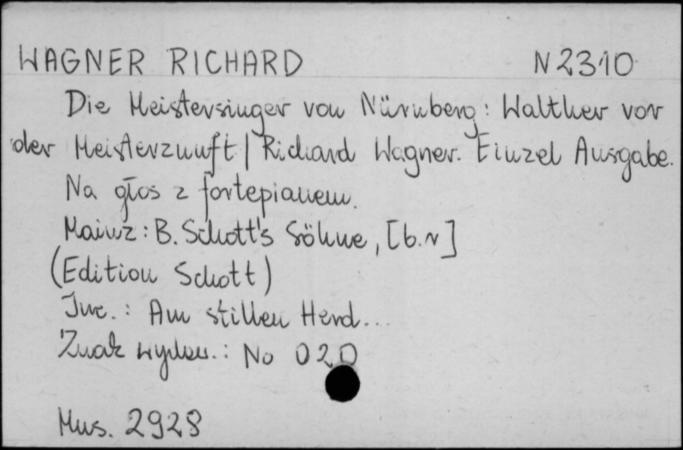 WAGNER RICHARD N 2310
Die Meistersinger von Nürnberg: Walther vor
der Meisterzunft / Richard Wagner. Einzel Ausgabe.
Na głos z fortepianem.
Mainz: B. Schott's Söhne, [b.r]
(Edition Schott)
Inc.: Am stillen Herd...
Znak wydaw.: No 020
Mus. 2928